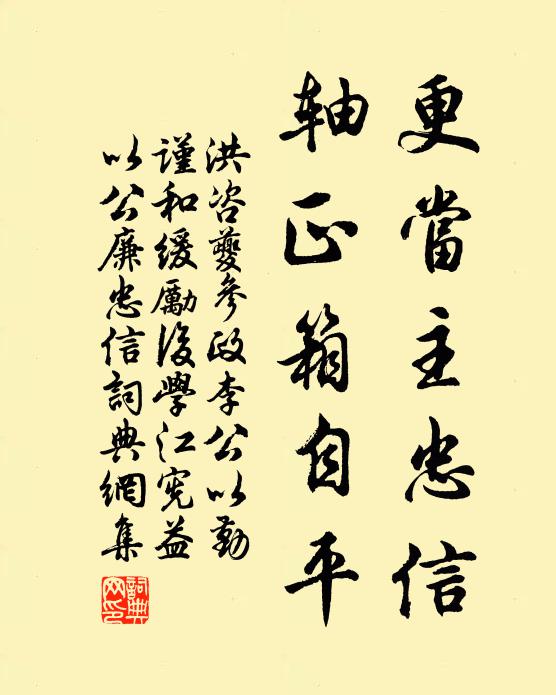 更當主忠信
軸正箱自平
洪咨夔參政李公以勤
謹和緩勵後學江宪益
以公廉忠信詞典網集
詞典
网印